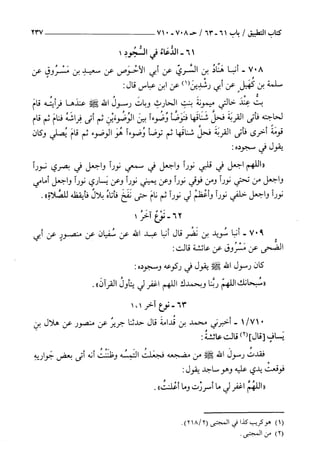 كتاب التطبيق / باب ٦١-٦٣ / حـ ٧٠٨-٧١٠
٢٣٧
٦١ - الدُّعَاءُ في السُّجُودِ ١
٧٠٨ - أنبا هَنَّادُ بن السَّريِّ عن أبي الأحْوَصِ عن سعيدِ بن مَسْرُوقٍ عن
سلمةَ بن كُهَيلٍ عن أبي رشْدِينَ(١) عن ابن عباسٍ قال:
بِتُّ عِنْدَ خالتي ميمونةَ بنتِ الحارثِ وباتَ رسولُ اللهِ ﷺ عندَها فرأيتُه قامَ
لحاجتهِ فأتى القِربَةَ فحلَّ شنَاقَها فتَوَضَّأ وُضُوءاً بينَ الوُضُوءَيْنِ ثم أتى فِراشَهُ فنَامَ ثم قامَ
قومَةً أخرى فأتى القربةَ فحلَّ شناقَها ثم توضأ وُضوءاً هُوَ الوضوء ثم قامَ يُصلي وكان
يقول في سجودِه:
«اللهم اجعل في قلبي نوراً واجعل في سمعي نوراً واجعل في بصري نوراً
واجعل من تحتي نوراً ومن فوقي نوراً وعن يميني نوراً وعن يساري نوراً واجعل أمامي
نوراً واجعل خلفي نوراً وأعظِمْ لي نوراً ثم نامَ حتى نَفَخَ فأتاهُ بلالٌ فأيقظه للصَّلاةِ».
٦٢ - نَوْعٌ آخرُ ١
٧٠٩ - أنبا سُويد بن نَصْرٍ قال أنبا عبد الله عن سُفيان عن منصورٍ عن أبي
الضُّحى عن مَسْرُوقٍ عن عائشةَ قالت:
كان رسولُ اللهِ ﷺ يقول في ركوعه وسجوده:
«سُبحانكَ اللهمّ ربَّنا وبحمدك اللهم اغفر لي يتأول القرآنَ».
٦٣ - نوع آخر ١،١
١/٧١٠ - أخبرني محمد بن قُدامةَ قال حدثنا جريرٌ عن منصور عن هلال بنِ
يَسافٍ [قال](٢) قالت عائشةُ:
فقدتُ رسولَ الله ﷺ من مضجعه فجعلتُ التمِسُه وظننتُ أنه أتى بعض جَواريهِ
فوقعتْ يدي عليه وهو ساجد يقول:
«اللَّهُمَّ اغفر لي ما أسررْت وما أعلنتُ».
(١) هو كريب كذا في المجتبى (٢١٨/٢).
(٢) من المجتبى.